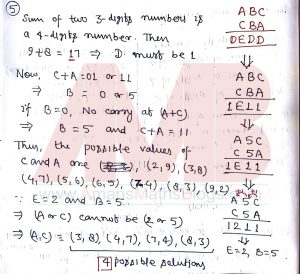 (5)
Sum of two 3-digits numbers is
a 4-digits number. Then
9+8 = 17 ⇒ D must be 1
Now, C+A = 01 or 11
⇒ B = 0 or 5
If B=0, No carry at (A+C)
⇒ B = 5 and C+A = 11
Thus, the possible values of
C and A are (2,9), (3,8)
(4,7), (5,6), (6,5), (7,4), (8,3), (9,2)
∵ E=2 and B=5.
⇒ (A or C) cannot be (2 or 5)
⇒ (A,C) = (3,8), (4,7), (7,4), (8,3)
4 possible solutions
ABC
CBA
DEDD
ABC
CBA
1E11
A5C
C5A
1E11
A5C
C5A
1211
E=2, B=5